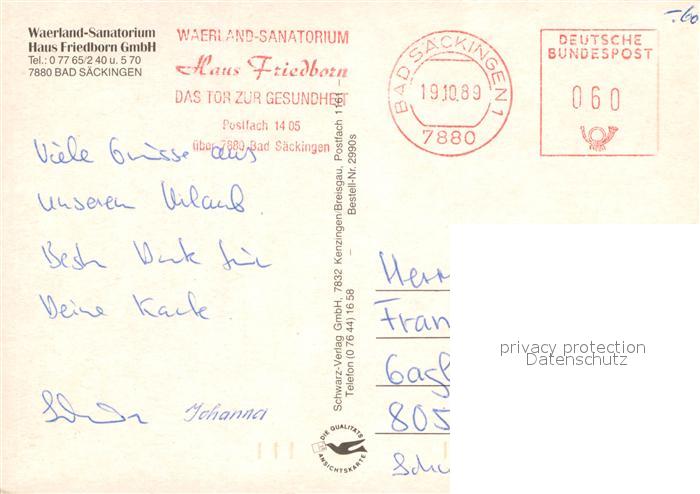 Waerland-Sanatorium
Haus Friedborn GmbH
Tel.: 0 77 65/2 40 u. 5 70
7880 BAD SÄCKINGEN
WAERLAND-SANATORIUM
Haus Friedborn
DAS TOR ZUR GESUNDHEIT
Postfach 14 05
über 7880 Bad Säckingen
BAD SÄCKINGEN 1
19.10.89
7880
DEUTSCHE
BUNDESPOST
060
-.60
Viele Grüsse aus
unserem Urlaub.
Besten Dank für
Deine Karte.
Johanna
Schwarz-Verlag GmbH, 7832 Kenzingen/Breisgau, Postfach 1161 –
Telefon (0 76 44) 16 58 – Bestell-Nr. 2990s
DIE QUALITÄTS
ANSICHTSKARTE
Herr
Fran
Gag
805
privacy protection
Datenschutz